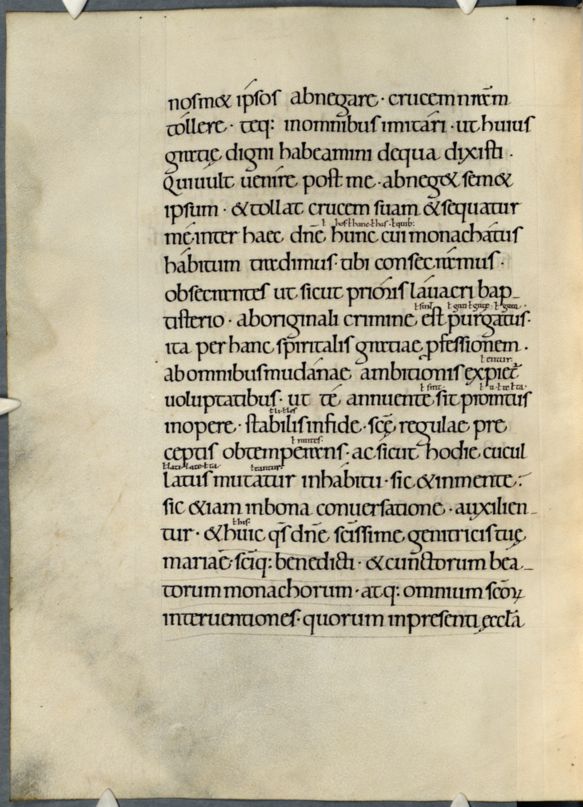 nosm& ipsos abnegare · crucem nr̄am
tollere · teq: inomnibus imitari · ut huius
gratię digni habeamini dequa dixisti ·
Quiuult uenire post me · abneg& sem&
ipsum · &tollat crucem suam &sequatur
ł hos ł hanc ł has · ł quib:
me inter haec dn̄e hunc cui monachatus
habitum tradimus tibi consecramus ·
obsecrantes ut sicut prioris lauacri bap
ł sint ł gati ł gata · ł gatae ·
tisterio · aboriginali crimine est purgatus ·
ita per hanc sp̄iritalis gratiae p̄fessionem ·
ł entur
abomnibus mundanae ambitionis expiet̄
ł sint · ł ti · ł ta ł tae
uoluptatibus · ut te annuente sit promtus
ł li · ł les
inopere · stabilis infide · sc̄ę regulae pre
ł rantes
ceptis obtemperans · ac sicut hodie cucul
ł lati · ł lata · ł tae ł tantur
latus mutatur inhabitu · sic &inmente :
sic &iam inbona conuersatione · auxilien
ł his ·
tur · &huic qs̄ dn̄e sc̄issime genitricis tuę
mariae · sc̄iq: benedicti · &cunctorum bea
torum monachorum · atq: omnium sc̄oꝝ
interuentiones · quorum inpresenti ęccl̄a